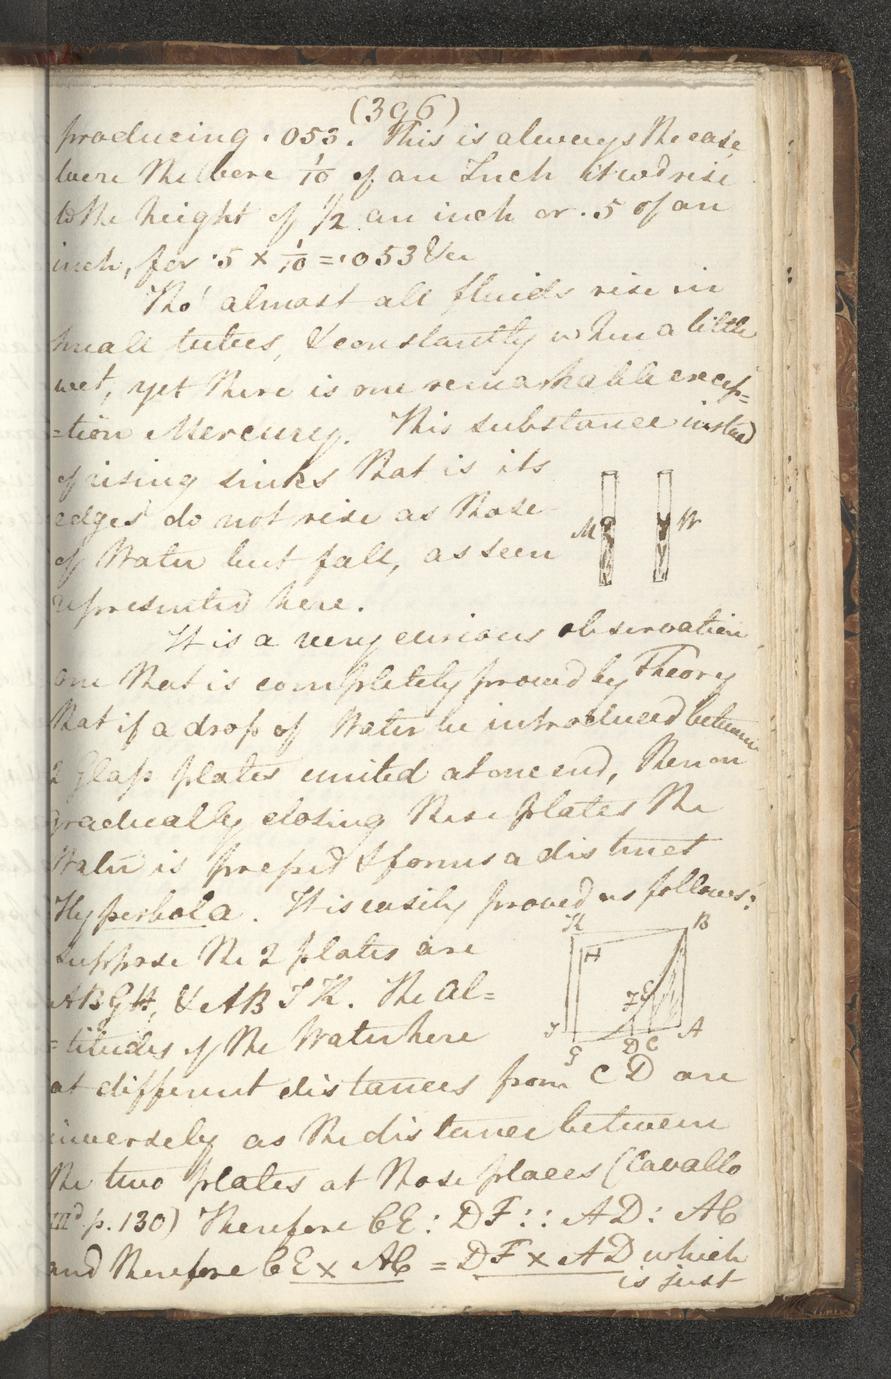 (396)
producing .053. This is always the case
were the bore 1/10 of an Inch it wd rise
to the height of 1/2 an inch or .5 of an
inch, for .5 × 1/10 = .053 &c
Tho' almost all fluids rise in
small tubes, & constantly when a little
wet, yet there is one remarkable excep=
=tion Mercury. This substance instead
of rising sinks that is its
edges do not rise as those
of Water but fall, as seen
represented here.
M W
It is a very curious observation
one that is completely proved by Theory
that if a drop of Water be introduced between
2 Glass plates united at one end, then on
gradually closing these plates the
Water is pressed & forms a distinct
Hyperbola. It is easily proved as follows:
suppose the 2 plates are
ABGH, & ABIK. The al=
=titudes of the Water here
K B
H
F E
I G D C A
at different distances from C D are
inversely as the distance between
the two plates at those places (Cavallo
IIId p. 130) Therefore CE : DF :: AD : AC
and therefore CE × AC = DF × AD which
is just